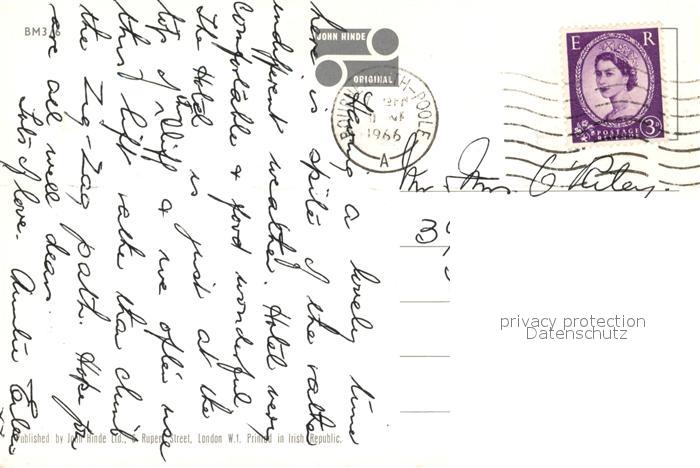 BM3
JOHN HINDE
ORIGINAL
BOURNEMOUTH-POOLE
1966
A
E R
POSTAGE
3D
Mr. Mrs. O'Riley.
39
privacy protection
Datenschutz
Having a lovely time
here in spite of the rather
indifferent weather. Hotel very
comfortable & food wonderful
The Hotel is just at the
top of the Cliff & we often use
this lift rather than climb
the Zig-Zag path. Hope you
are all well dears.
Lots of love. Auntie
Published by John Hinde Ltd., Rupert Street, London W.1. Printed in Irish Republic.